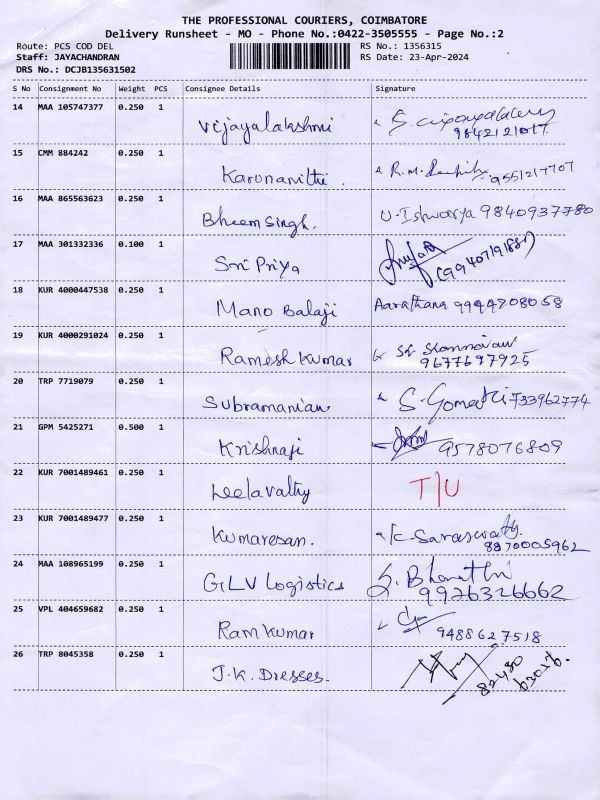 THE PROFESSIONAL COURIERS, COIMBATORE
Delivery Runsheet - MO - Phone No.:0422-3505555 - Page No.:2
Route: PCS COD DEL RS No.: 1356315
Staff: JAYACHANDRAN RS Date: 23-Apr-2024
DRS No.: DCJB135631502
S No Consignment No Weight PCS Consignee Details Signature
14 MAA 105747377 0.250 1
Vijayalakshmi
9842121017
15 CMM 884242 0.250 1
Karunanithi. R.M. 9551217707
16 MAA 865563623 0.250 1
Bheem Singh. U. Ishwarya 9840937780
17 MAA 301332336 0.100 1
Sri Priya
18 KUR 4000447538 0.250 1
Mano Balaji Aarathana 9944708058
19 KUR 4000291024 0.250 1
Ramesh Kumar
9677697925
20 TRP 7719079 0.250 1
Subramanian S. Gomathi 733962774
21 GPM 5425271 0.500 1
Krishnaji 9578076809
22 KUR 7001489461 0.250 1
Leelavathy T/U
23 KUR 7001489477 0.250 1
Kumaresan. K. Saraswathy
8870005962
24 MAA 108965199 0.250 1
GLV Logistics S. Bharathi
9976326662
25 VPL 404659682 0.250 1
Ram Kumar 9488627518
26 TRP 8045358 0.250 1
J.K. Dresses.